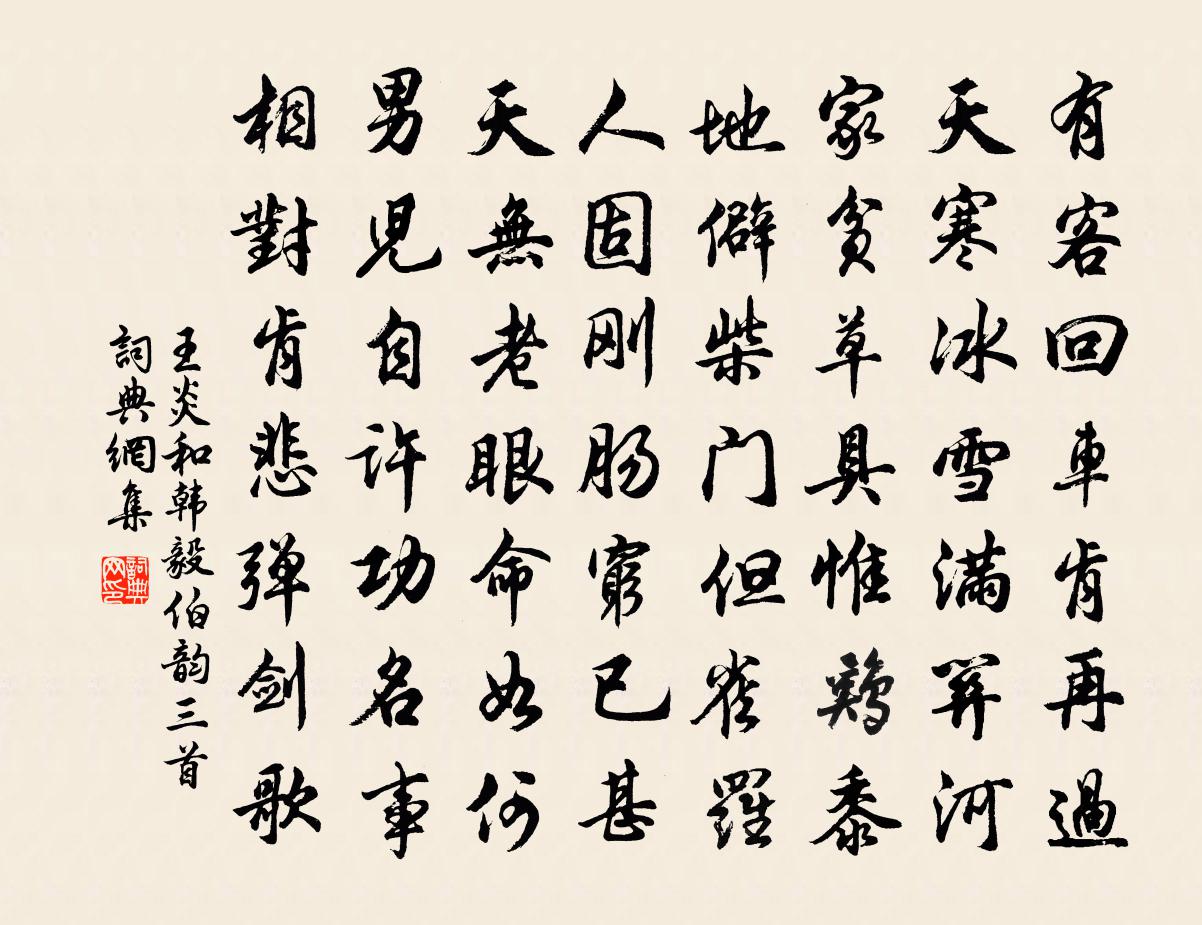 有客回車肯再過
天寒冰雪满關河
家貧草具惟鷄黍
地僻柴门但雀羅
人固刚肠窮已甚
天無老眼命如何
男児自许功名事
相對肯悲弹剑歌
王炎和韩毅伯韵三首
詞典網集
詞典网印